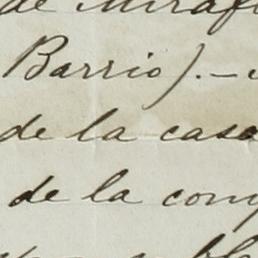 de Miraf
Barrio).-
de la casa
de la com